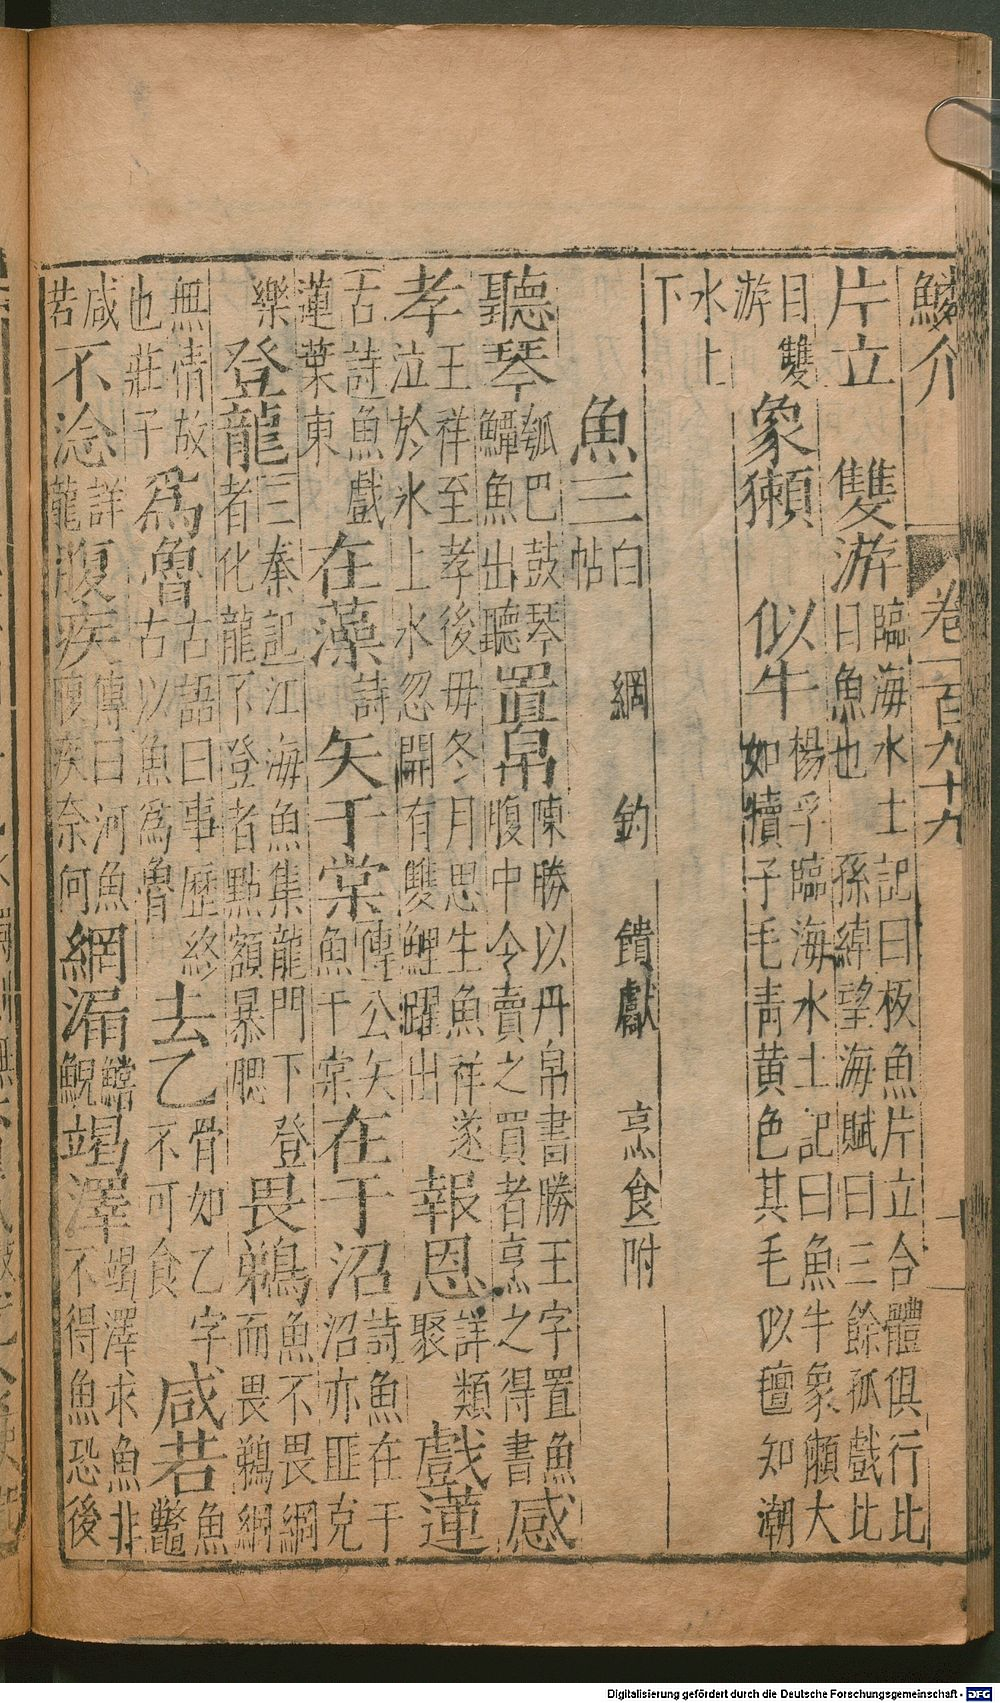 鱗介 卷一百九十九 十
片立 雙游 臨海水土記曰板魚片立合體俱行比
目魚也 孫綽望海賦曰三餘孤戲比
目雙
游
象獺 似牛 楊孚臨海水土記曰魚牛象獺大
如犢子毛青黃色其毛似氊知潮
水上
下
魚三 白帖 網 釣 饋獻 烹食附
聽琴 瓠巴鼓琴
鱏魚出聽
置帛 陳勝以丹帛書勝王字置魚
腹中令賣之買者烹之得書
感
孝 王祥至孝後毋冬月思生魚祥遂
泣於氷上水忽開有雙鯉躍出
報恩 詳類
聚
戲蓮
古詩魚戲
蓮葉東
在藻 詩
矢于棠 傳公矢
魚于棠
在于沼 詩魚在于
沼亦匪克
樂 登龍 三秦記江海魚集龍門下登
者化龍不登者點額暴腮
畏鵜 魚不畏網
而畏鵜網
無情故
也莊子
爲魯 古語曰事歷終
古以魚爲魯
去乙 骨如乙字
不可食
咸若 魚
鼈
咸
若
不淰 詳
龍
腹疾 傳曰河魚
腹疾奈何
網漏 鱣
鯢
竭澤 竭澤求魚非
不得魚恐後
Digitalisierung gefördert durch die Deutsche Forschungsgemeinschaft - DFG